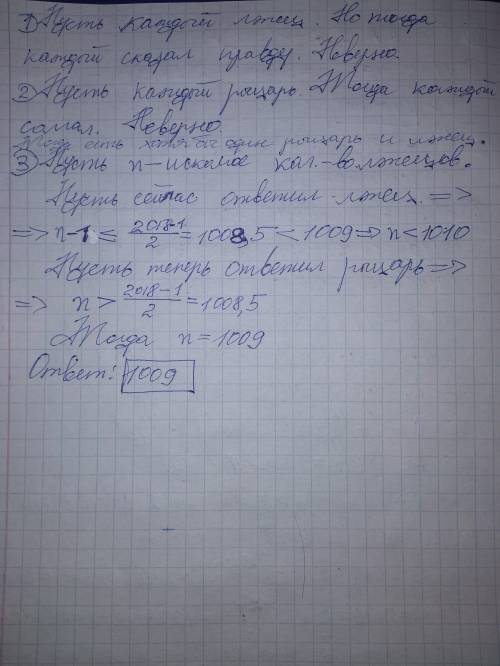 1) Пусть каждый лжец. Но тогда
каждый сказал правду. Неверно.
2) Пусть каждый рыцарь. Тогда каждый
солгал. Неверно.
Тогда есть хотя бы один рыцарь и лжец.
3) Пусть n - искомое кол-во лжецов.
Пусть сейчас ответил лжец =>
=> n-1 ≤ 2018-1/2 = 1008,5 < 1009 => n < 1010
Пусть теперь ответил рыцарь =>
=> n > 2018-1/2 = 1008,5
Тогда n = 1009
Ответ: 1009